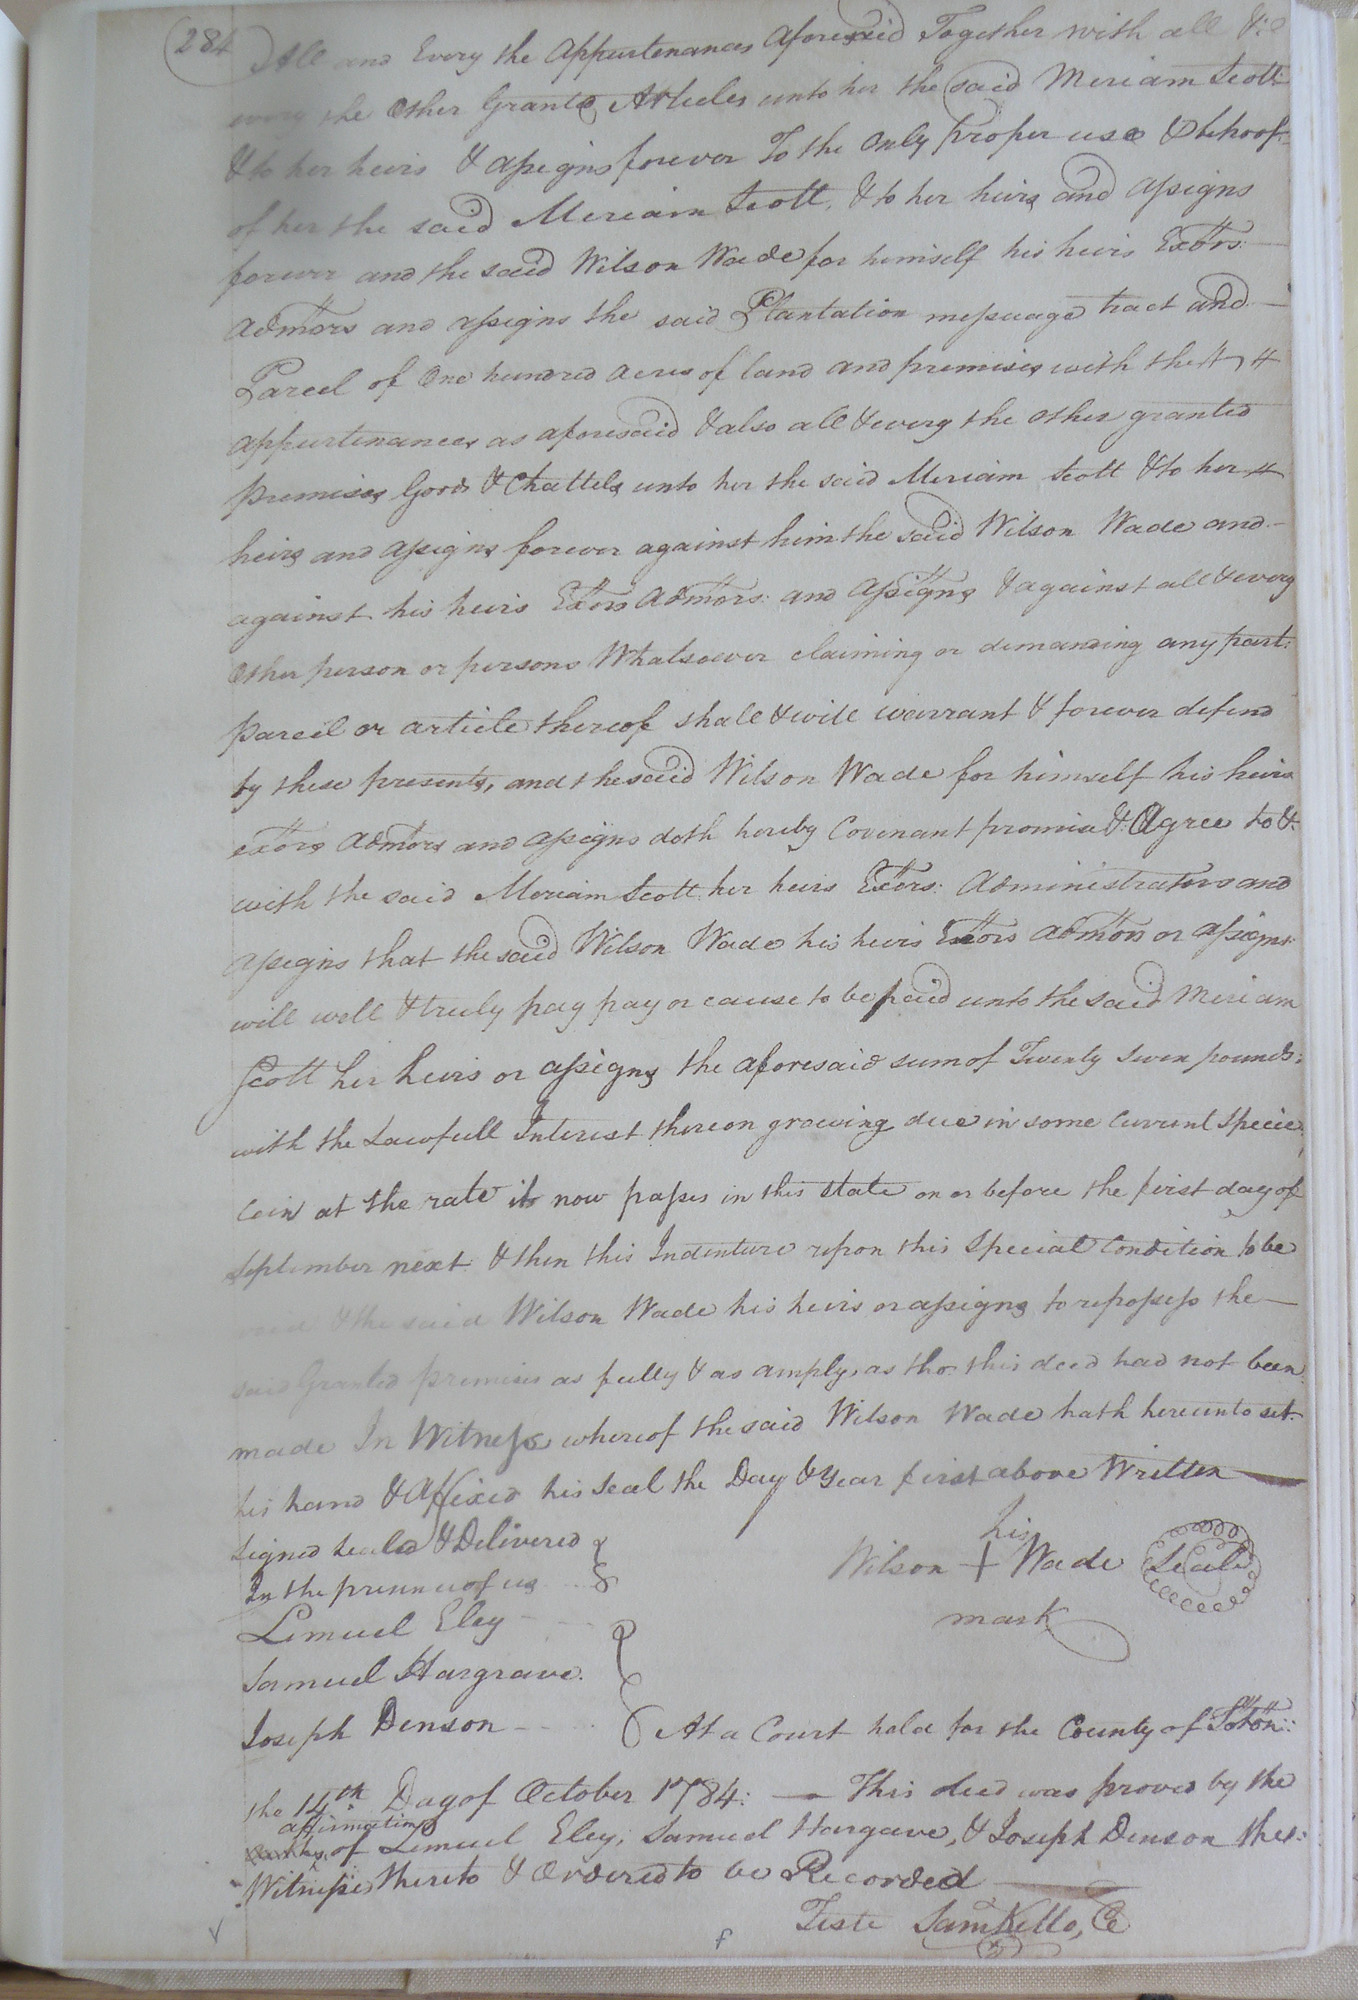 284
All and Every the appurtenances aforesaid Together with all &
every the Other Granted Articles unto her the said Meriam Scott
& to her heirs & assigns forever To the only proper use & behoof
of her the said Meriam Scott, & to her heirs and assigns
forever and the said Wilson Wade for himself his heirs Extors:
admors and assigns the said Plantation messuage tract and
Parcel of One hundred acres of land and premises with the
appurtenances as aforesaid & also all & every the other granted
premises Goods & Chattels unto her the said Meriam Scott & to her
heirs and assigns forever against him the said Wilson Wade and
against his heirs Extors admors: and assigns & against all & every
Other person or persons Whatsoever claiming or demanding any part:
parcel or article thereof shall & will warrant & forever defend
by these presents, and the said Wilson Wade for himself his heirs
extors admors and assigns doth hereby Covenant promise & Agree to &
with the said Meriam Scott her heirs Extors: administrators and
assigns that the said Wilson Wade his heirs Extors admors or assigns
will well & truly pay pay or cause to be paid unto the said Meriam
Scott her heirs or assigns the aforesaid sum of Twenty Seven pounds:
with the Lawfull Interest thereon growing due in some Current Specie
Coin at the rate it now passes in this state on or before the first day of
September next & then this Indenture upon this Special Condition to be
void & the said Wilson Wade his heirs or assigns to repossess the
said Granted premises as fully & as amply as tho this deed had not been
made In Witness whereof the said Wilson Wade hath hereunto set
his hand & Affixed his Seal the Day & Year first above Written
Signed Sealed & Delivered
In the presence of us
his
Wilson + Wade Seal
mark
Lemuel Eley
Samuel Hargrave.
Joseph Denson
At a Court held for the County of Soton::
the 14th Day of October 1784: — This deed was proved by the
affirmation
of Lemuel Eley, Samuel Hargave, & Joseph Denson the
Witnesses thereto & Ordered to be Recorded
Teste Saml Kello, C